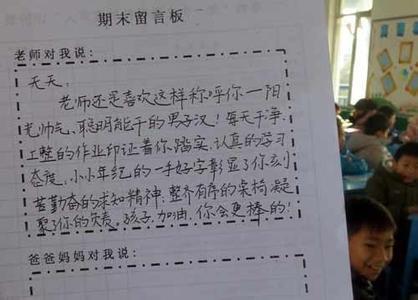 期末留言板
老师对我说:
天天:
老师还是喜欢这样称呼你—阳
光帅气、聪明能干的男子汉!每天干净、
工整的作业印证着你踏实、认真的学习
态度,小小年纪的一手好字彰显了你刻
苦勤奋的求知精神,整齐有序的桌椅凝
聚了你的负责,孩子,加油,你会更棒的!
爸爸妈妈对我说: